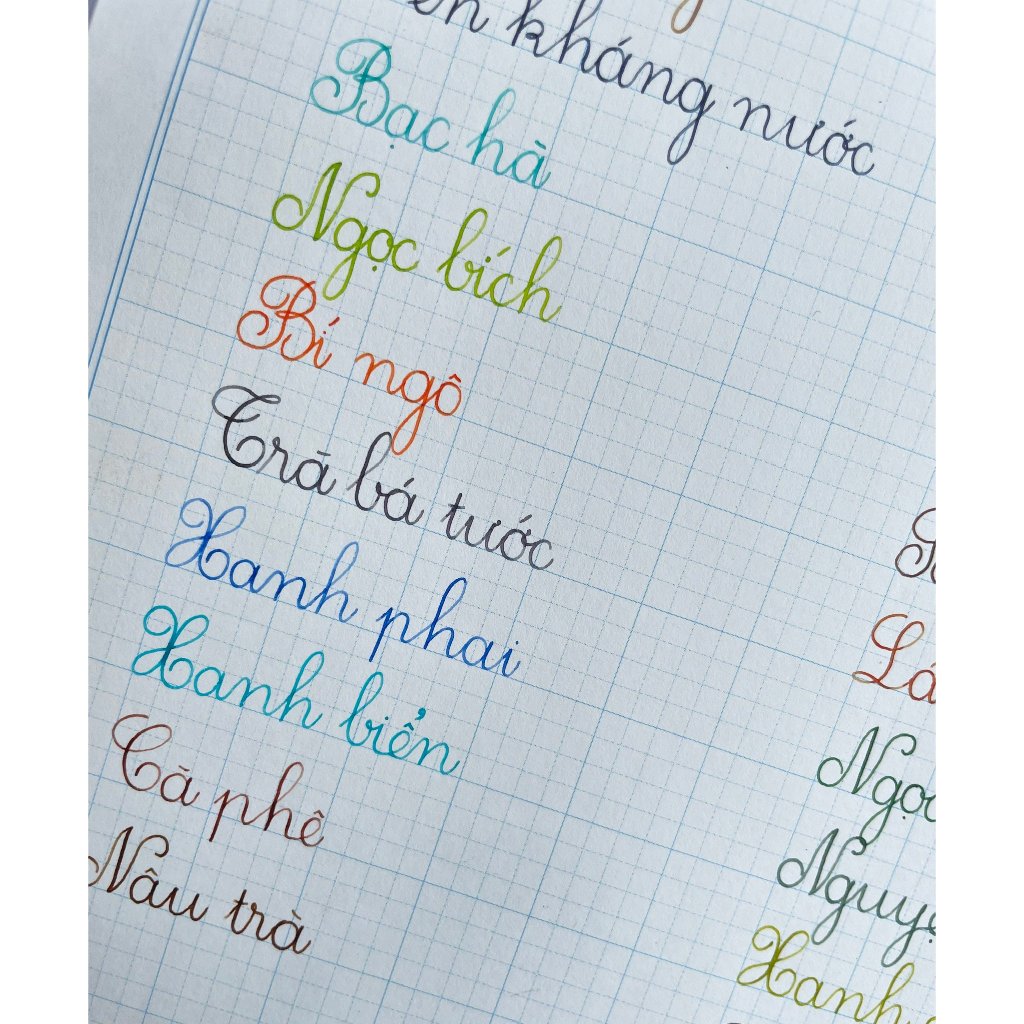 kháng nước
Bạc hà
Ngọc bích
Bí ngô
Trà bá tước
Xanh phai
Xanh biển
Cà phê
Nâu trà
Xanh